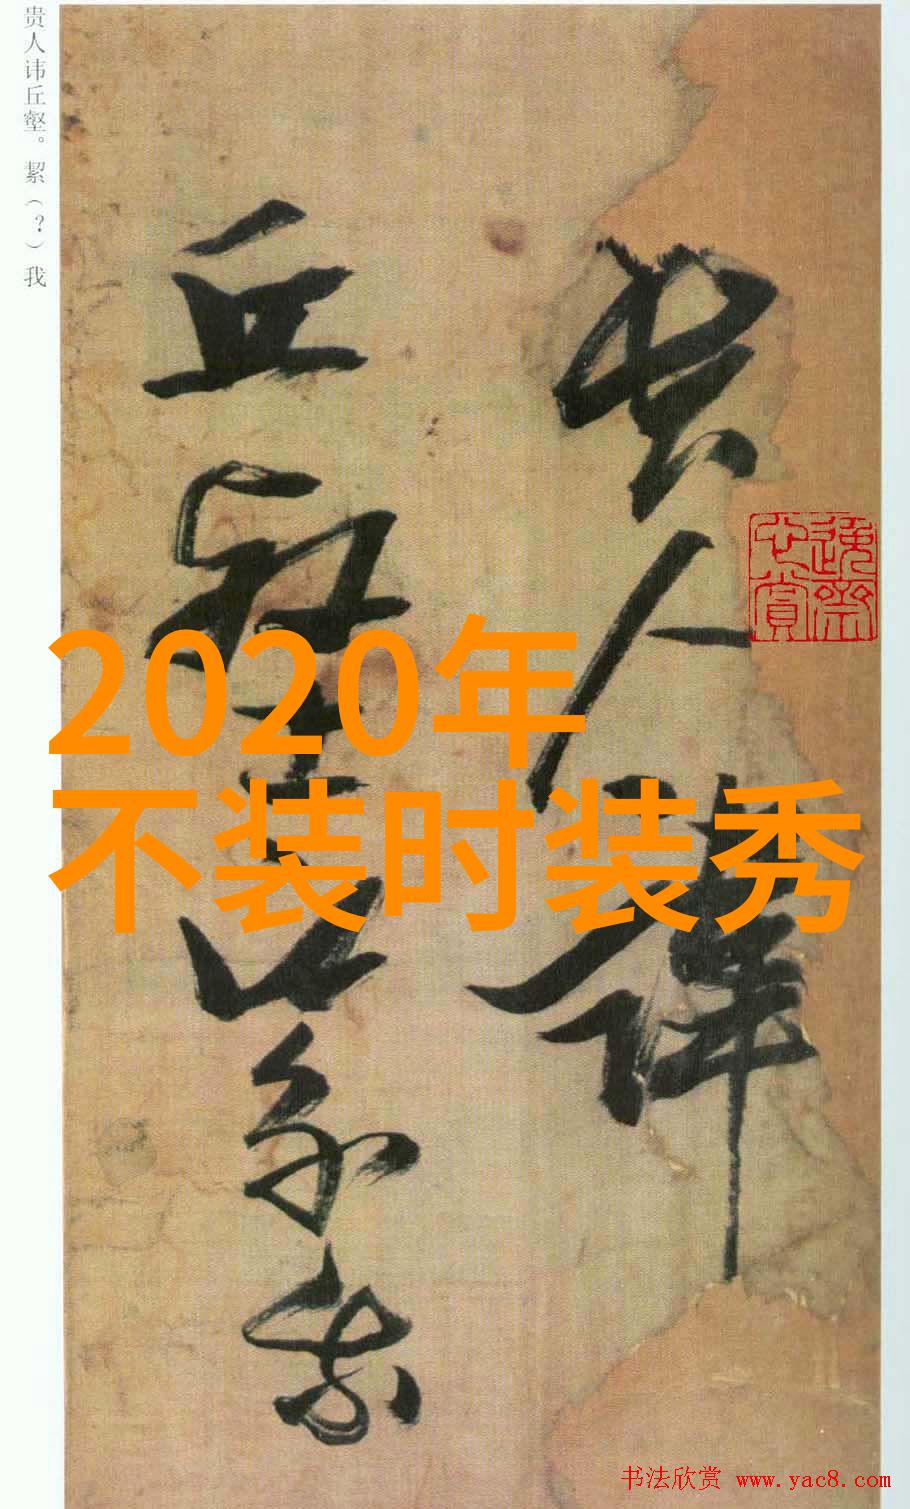 贵人讳丘壑。絜（？）我
贵人讳
丘壑
絜我
2020年
不装时装秀
书法欣赏 www.yac8.com